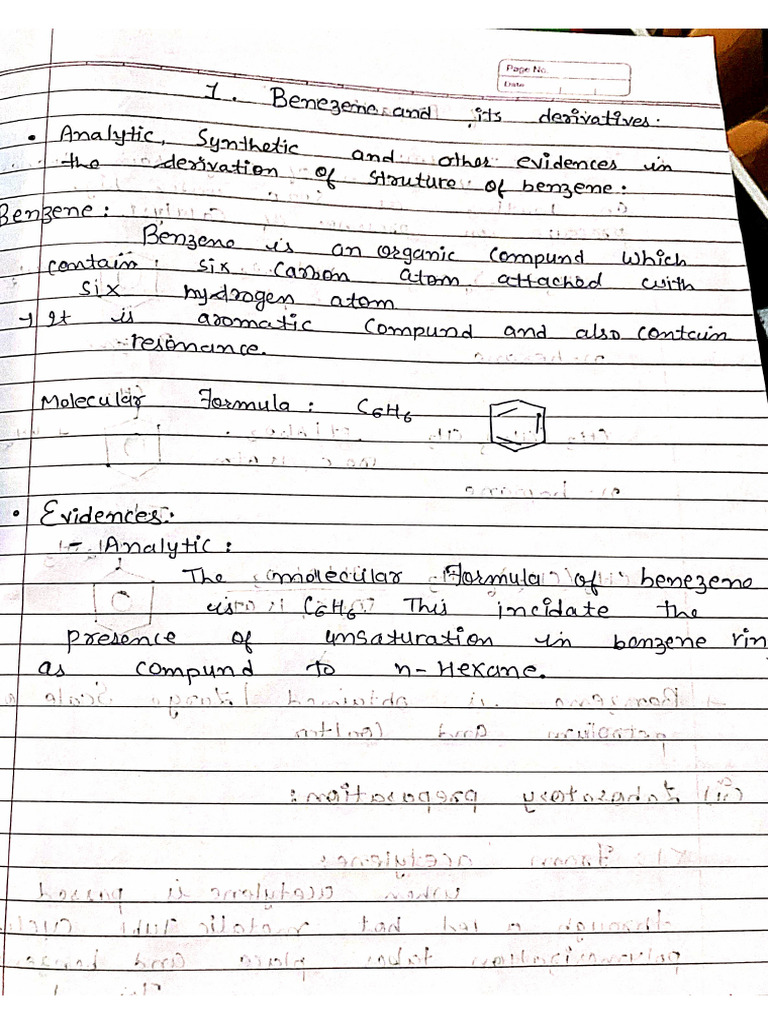 Page No.
Date
1. Benezene and its derivatives.
• Analytic, Synthetic and other evidences in
the derivation of struture of benzene:
Benzene:
Benzene is an organic compund which
contain: six carbon atom attached with
six hydrogen atom
→ It is aromatic compund and also contain
resonance.
Molecular Formula: C6H6
• Evidences:
- Analytic:
The molecular Formula of benezene
is C6H6. This incidate the
presence of unsaturation in benzene ring
as compund to n-Hexane.